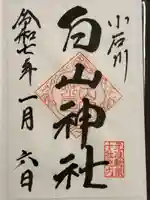 小石川
白山神社
令和七年一月六日